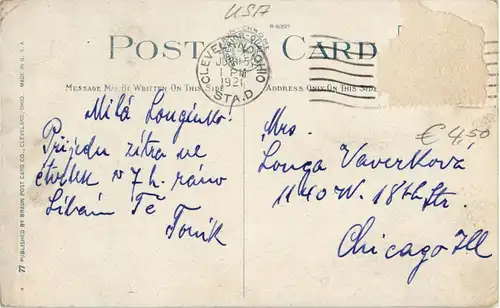 USA
R-43021
POST CARD
CLEVELAND, OHIO
JUN 15
1 PM
1921
STA. D
MESSAGE MAY BE WRITTEN ON THIS SIDE
ADDRESS ONLY ON THIS SIDE
€ 4,50
Milá Longinko!
Prijedu zítra ve
čtvrtek v 7 h. ráno
Líbám Tě
Toník
Mrs.
Longa Vaverkova
1140 W. 18th Str.
Chicago Ill
77 PUBLISHED BY BRAUN POST CARD CO., CLEVELAND, OHIO. MADE IN U. S. A.